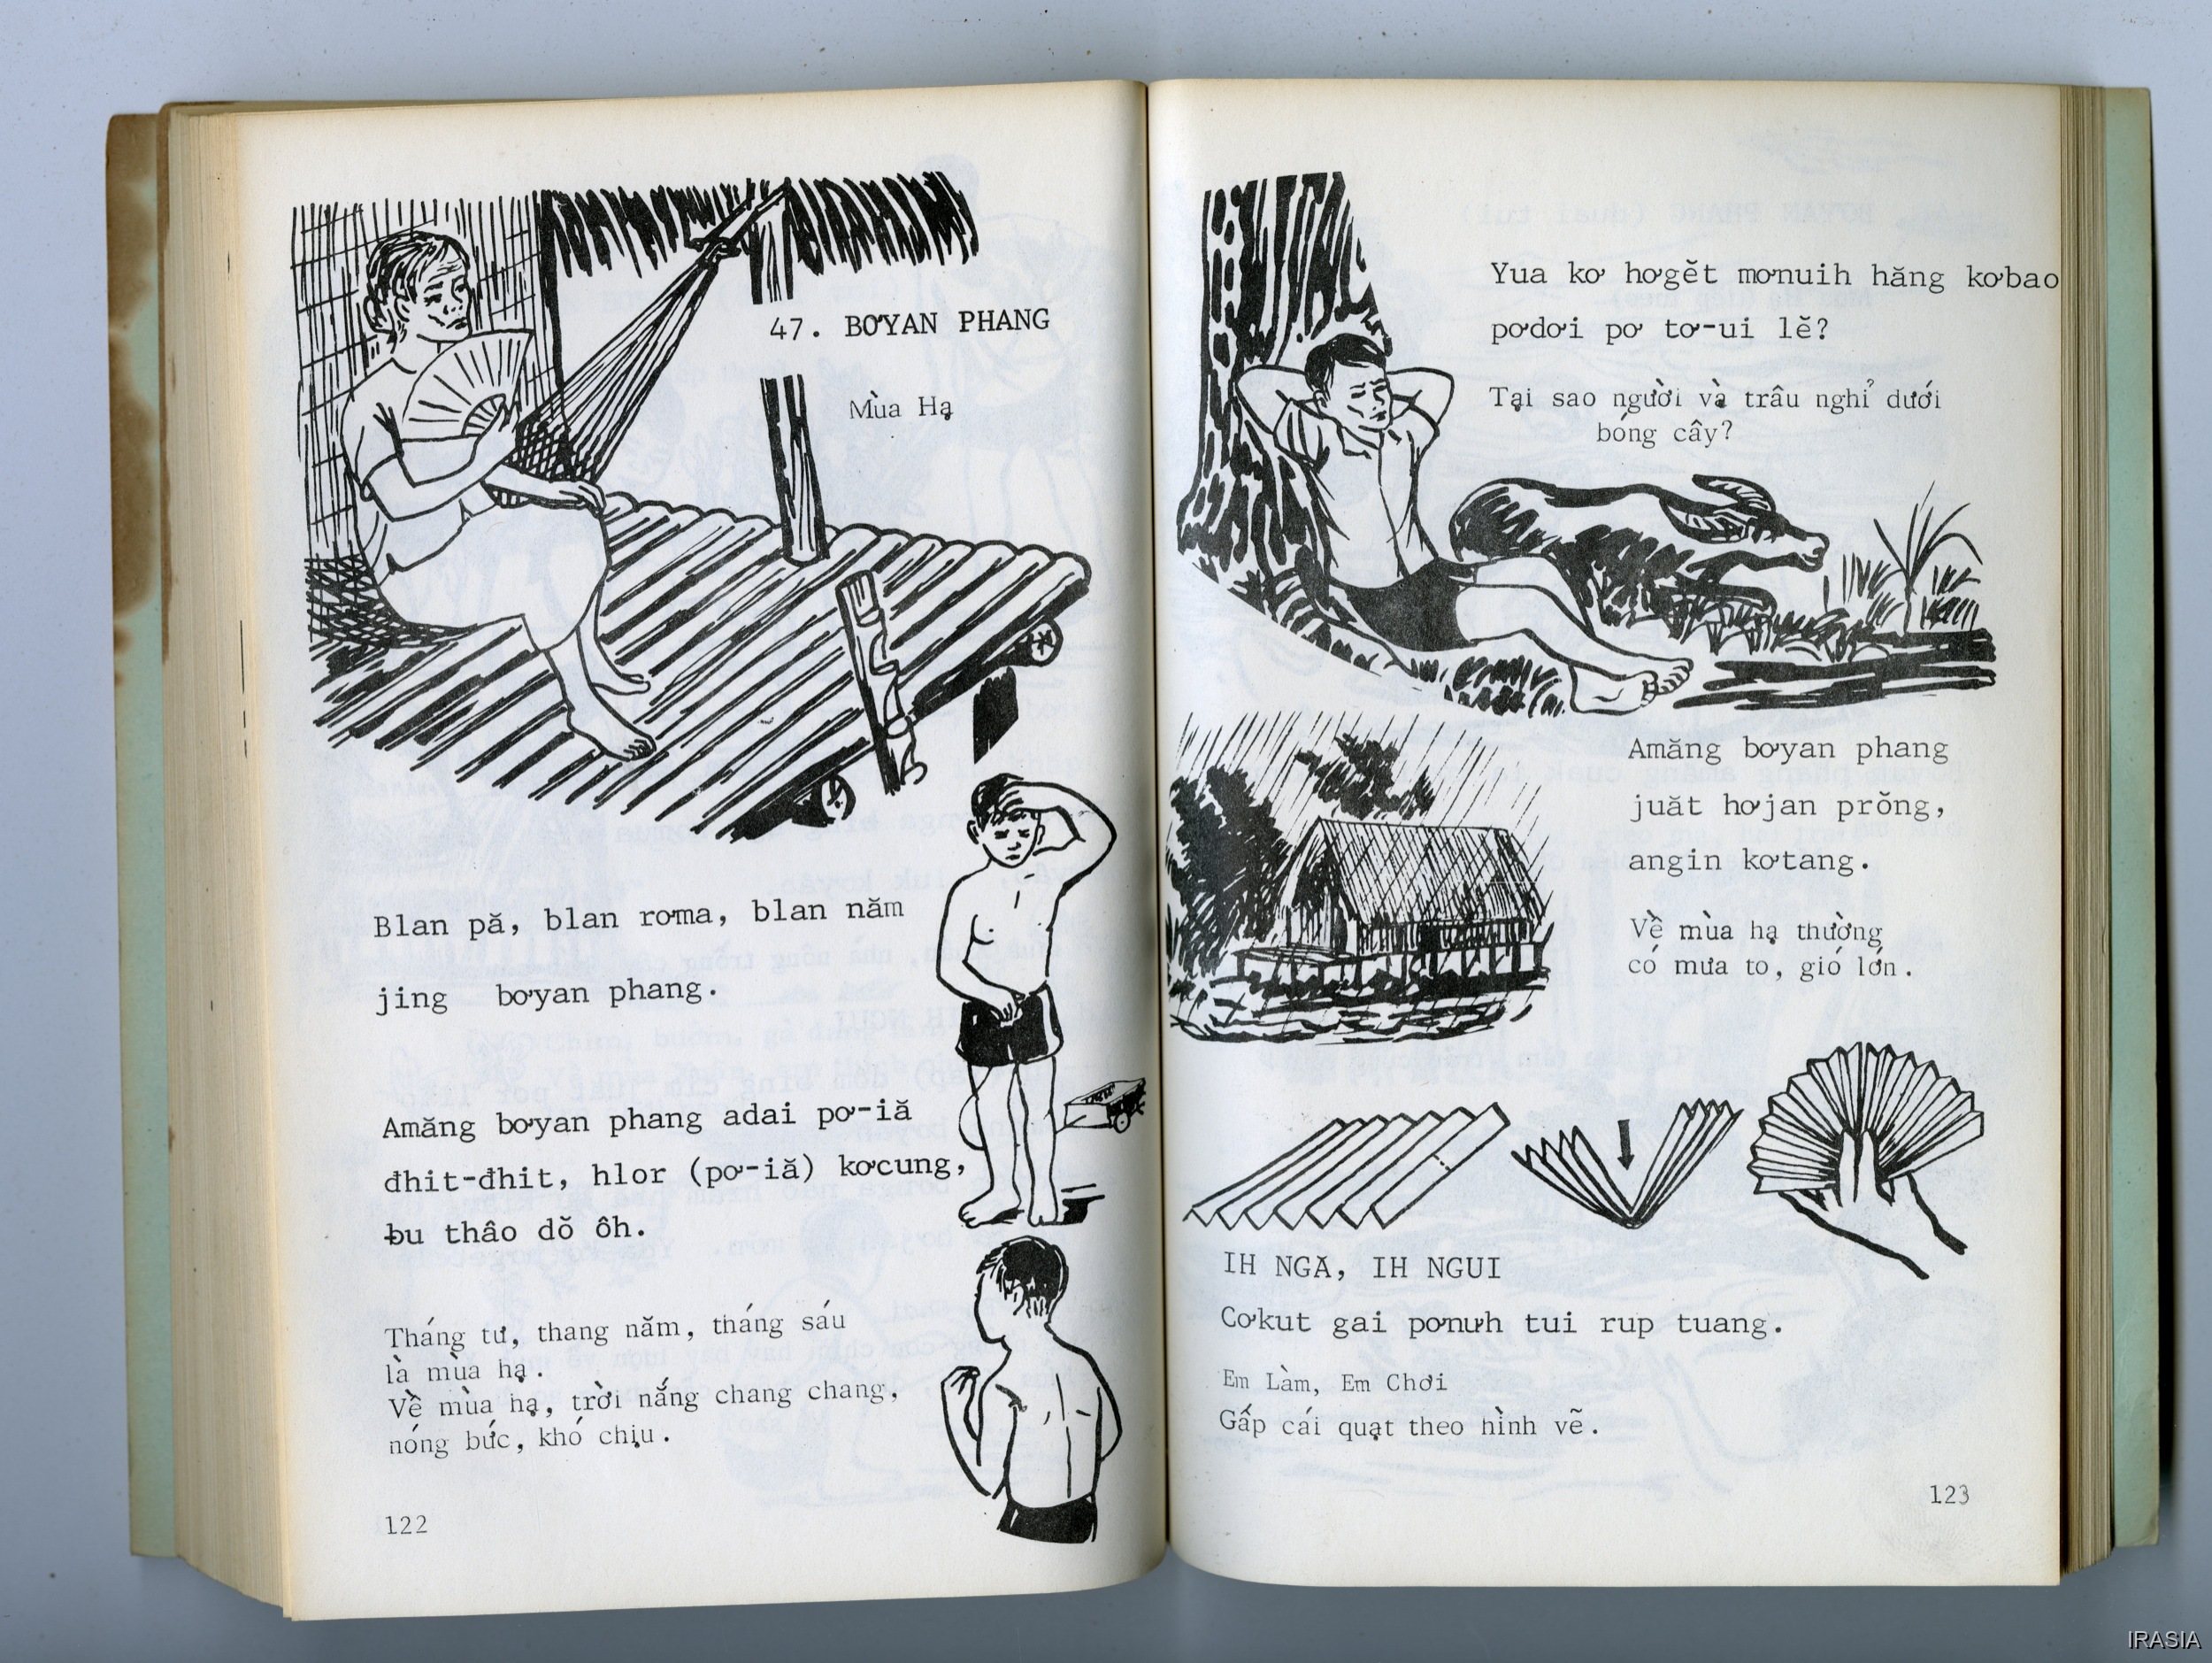 47. BƠYAN PHANG
Mùa Hạ
Blan pă, blan rơma, blan năm
jing bơyan phang.
Amăng bơyan phang adai pơ-iă
đhit-đhit, hlor (pơ-iă) kơcung,
ƀu thâo dŏ ôh.
Tháng tư, thang năm, tháng sáu
là mùa hạ.
Về mùa hạ, trời nắng chang chang,
nóng bức, khó chịu.
122
Yua kơ hơgĕt mơnuih hăng kơbao
pơdơi pơ tơ-ui lĕ?
Tại sao người và trâu nghỉ dưới
bóng cây?
Amăng bơyan phang
juăt hơjan prŏng,
angin kơtang.
Về mùa hạ thường
có mưa to, gió lớn.
IH NGĂ, IH NGUI
Cơkut gai pơnưh tui rup tuang.
Em Làm, Em Chơi
Gấp cái quạt theo hình vẽ.
123
IRASIA